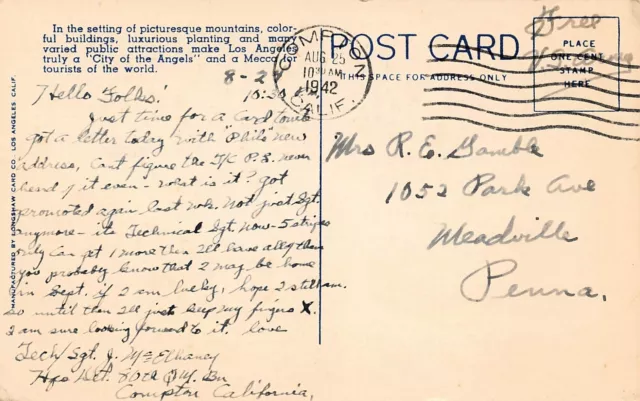 In the setting of picturesque mountains, color-
ful buildings, luxurious planting and many
varied public attractions make Los Angeles
truly a "City of the Angels" and a Mecca for
tourists of the world.
MANUFACTURED BY LONGSHAW CARD CO. LOS ANGELES CALIF.
COMPTON
AUG 25
10 30 AM
1942
CALIF.
POST CARD
THIS SPACE FOR ADDRESS ONLY
PLACE
ONE CENT
STAMP
HERE
Free
U.S. Army
8-24
10:30
Hello Folks!
Just time for a card tonite
got a letter today with "Phil's" new
address, Cant figure the P.S. never
heard of it even - what is it? Got
promoted again last wk. Not just Sgt.
anymore - its Technical Sgt. now - 5 stripes
only can get 1 more then I'll have all of them
you probably know that I may be home
in Sept. if I am lucky, hope I still am.
so until then I'll just keep my figers X.
I am sure looking forward to it. love
Tech/Sgt. J. McElhaney
Hqs Det. 80th QM. Bn
Compton California,
Mrs R. E. Gamble
1052 Park Ave
Meadville
Penna.